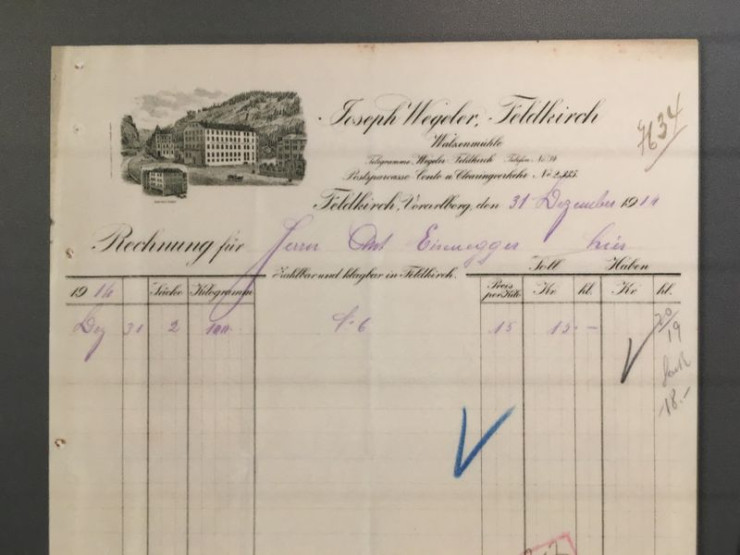 Joseph Wegeler, Feldkirch
7634
Walzenmühle
Telegramme: Wegeler Feldkirch Telefon Nr. 14
Postsparcasse-Conto u. Clearingverkehr No 2,455.
Feldkirch, Vorarlberg, den 31 Dezember 1914
Rechnung für Herrn Ant Einegger hier
Zahlbar und klagbar in Feldkirch.
Soll Haben
1914 Säcke Kilogramm Preis per Kilo Kr. hl. Kr. hl.
Dez 31 2 100 15 15.-
20/19
18.-